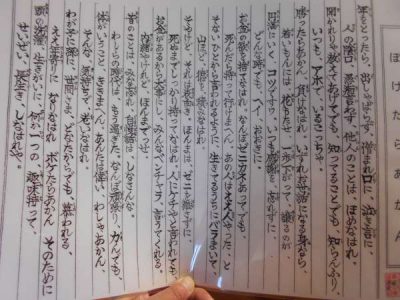 ぼけたらあかん
年をとったら出しゃばらず 憎まれ口に 泣き言に
人の陰口 愚痴言わず 他人のことは ほめなはれ
聞かれりゃ教えてあげても 知ってることでも 知らんふり
いつでもアホでいるこっちゃ
勝ったらあかん 負けなはれ いずれお世話になる身なら
若いもんには花もたせ 一歩下って譲るのが
円満にいく コツですわ いつも感謝を忘れずに
どんな時でも へえおおきに
お金の欲を捨てなはれ なんぼゼニカネあってでも
死んだら持って行けまへん あの人はええ人やった
そないに人から言われるように 生きてるうちにバラまいて
山ほど徳を積みなはれ
そやけど それは表向き ほんまは ゼニを離さずに
死ぬまでしっかり持ってなはれ 人にケチやと言われても
お金があるから大事にし みんなベンチャラ 言うてくれる
内緒やけれど ほんまでっせ
昔のことは みな忘れ 自慢話は しなさんな
わしらの時代はもう過ぎた なんぼ頑張り 力んでも
体がいうこと ききまへん あんたは偉い わしゃあかん
そんな気持で おりなはれ
わが子に孫に 世間さま どなたからでも 慕われる
ええ年寄りに なりなはれ ボケたらあかん そのために
頭の洗濯 生きがいに 何か一つの 趣味持って
せいぜい 長生き しなはれや